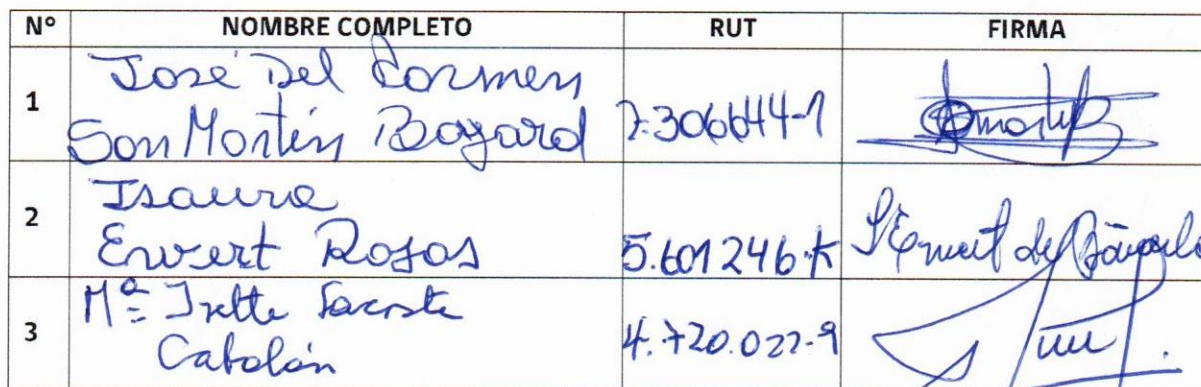 N° NOMBRE COMPLETO RUT FIRMA
1 José Del Carmen
San Martín Bayard 7.306644-1
2 Isaura
Ewert Rosas 5.601246-K
3 Mª Ivette Lacoste
Catalán 4.720.022-9